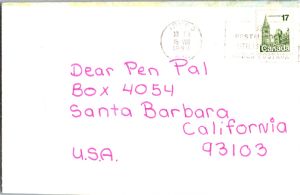 17
Canada
Dear Pen Pal
Box 4054
Santa Barbara
California
U.S.A. 93103